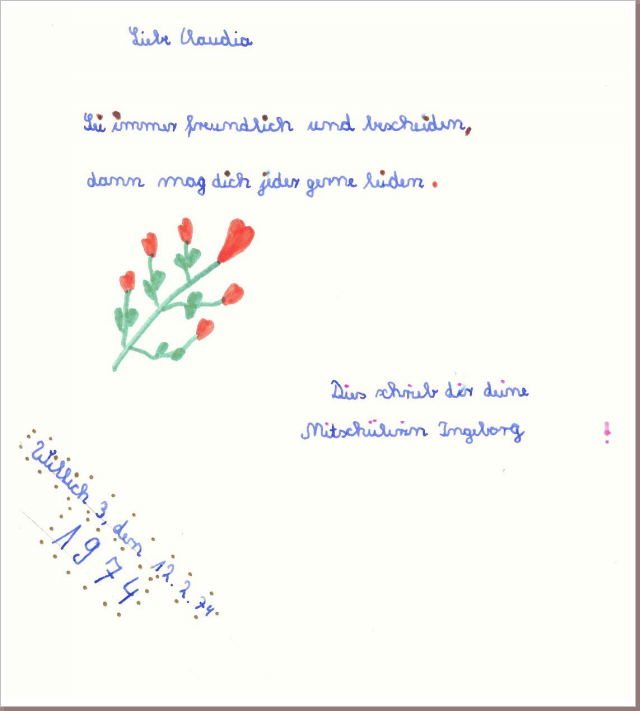 Liebe Claudia
Sei immer freundlich und bescheiden,
dann mag dich jeder gerne leiden.
Dies schrieb dir deine
Mitschülerin Ingeborg !
Willich 3, den 12.2.74
1974